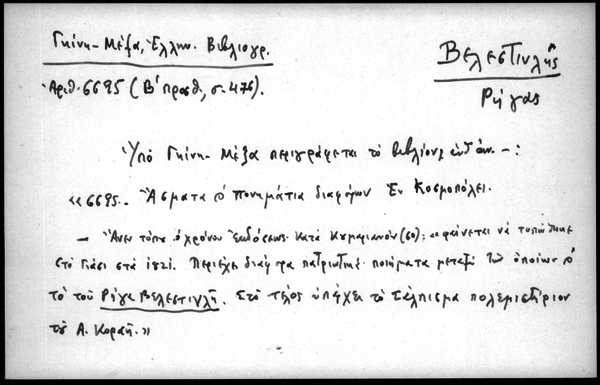 Γκίνη-Μέξα, Ἑλλην. Βιβλιογρ.
Βελεστινλῆς
Ἀριθ. 6695 (Β' προσθ., σ. 476).
Ρήγας
Ὑπὸ Γκίνη-Μέξα περιγράφεται τὸ βιβλίον, :
«6695.- Ἄσματα καὶ πονημάτια διαφόρων Ἐν Κοσμοπόλει.
— Ἄνευ τόπου καὶ χρόνου ἐκδόσεως. Κατὰ Κουμαριανὸν (60): «φαίνεται νὰ τυπώθηκε
στὸ Γιάσι στὰ 1821. Περιέχει διάφορα πατριωτικὰ ποιήματα μεταξὺ τῶν ὁποίων καὶ
τὸ τοῦ Ρήγα Βελεστινλῆ. Στὸ τέλος ὑπάρχει τὸ Σάλπισμα πολεμιστήριον
τοῦ Α. Κοραῆ.»